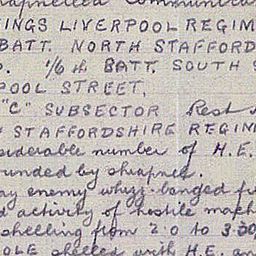 INGS LIVERPOOL REGIM
BATT. NORTH STAFFORD
1/6th BATT. SOUTH S
POOL STREET.
"C" SUBSECTOR Rest
STAFFORDSHIRE REGIM
siderable number of H.E.
ounded by shrapnel.
ay enemy whizz-banged
d activity of hostile
shelling from 2.0 to 3.30
OLE shelled with H.E. an